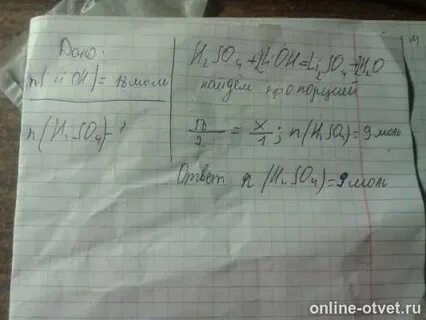 Дано:
n(LiOH)=18 моль
n(H₂SO₄)-?
H₂SO₄+2LiOH=Li₂SO₄+H₂O
найдём пропорцией
18/2 = x/1; n(H₂SO₄)=9 моль
Ответ: n(H₂SO₄)=9 моль
online-otvet.ru